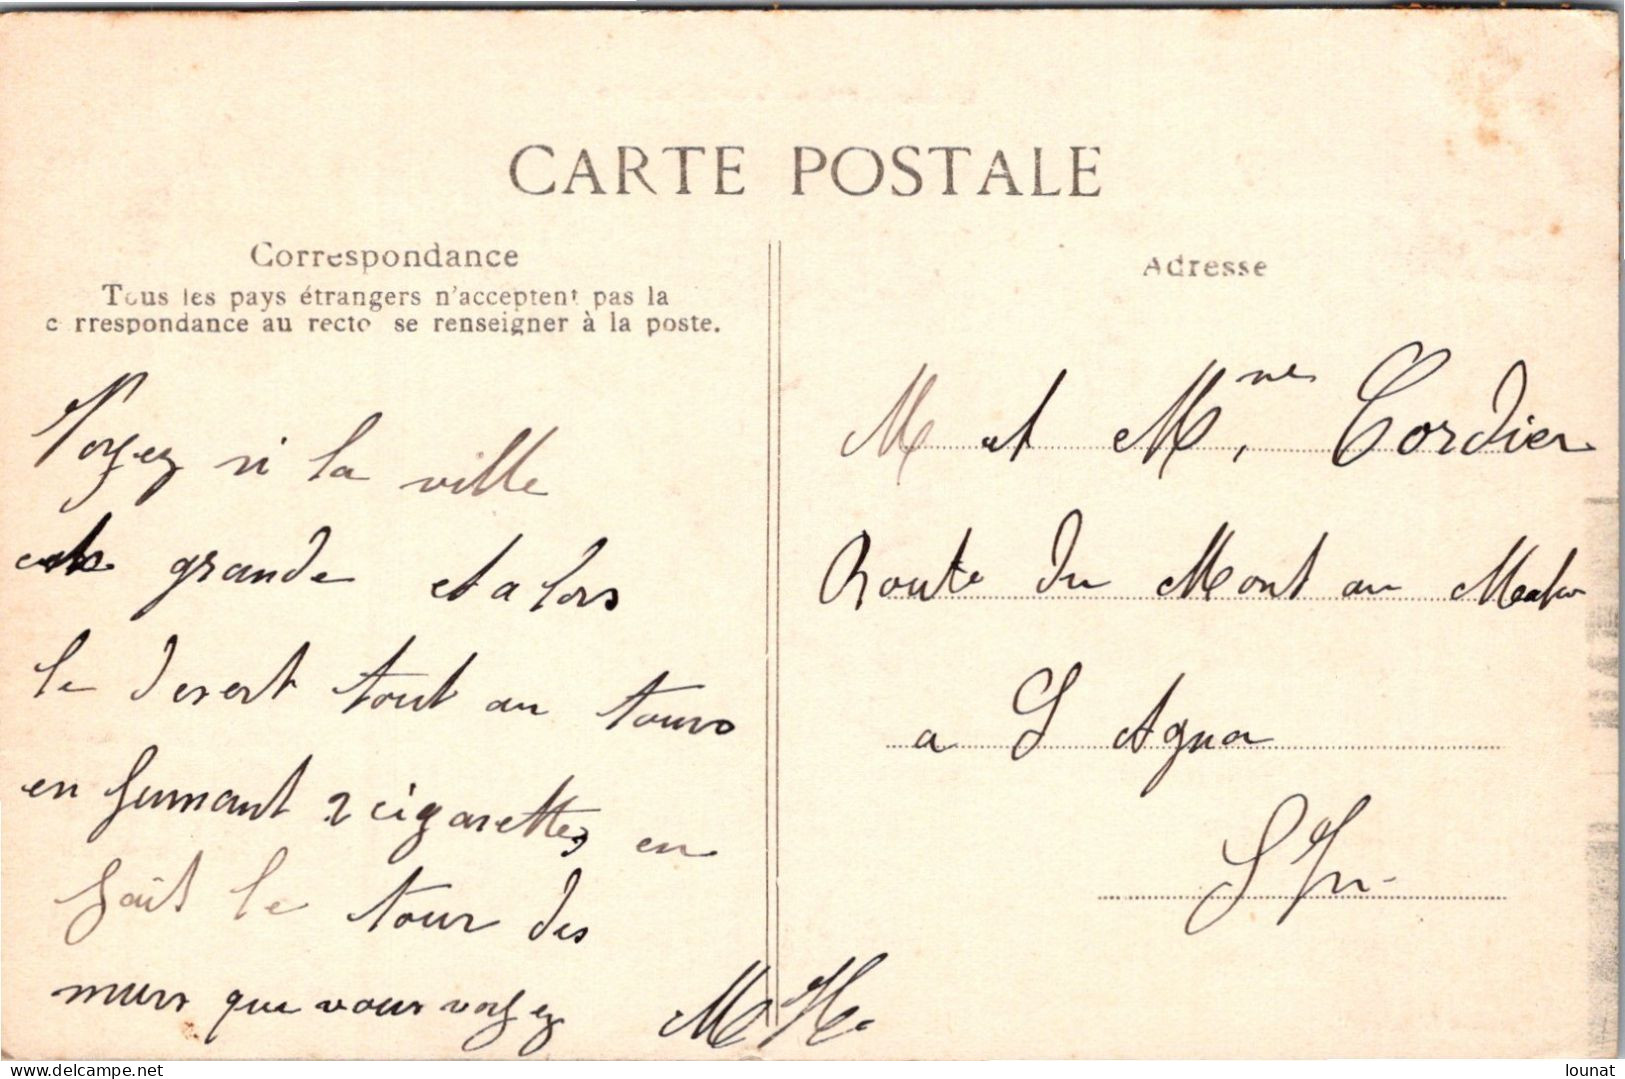 CARTE POSTALE
Correspondance
Tous les pays étrangers n'acceptent pas la
c rrespondance au recto se renseigner à la poste.
Voyez si la ville
est grande et alors
le desert tout au tours
en fumant 2 cigarettes en
fait le tour des
murs que vous voyez
M H.
Adresse
M et Mme, Cordier
Route du Mont au
a S Agna